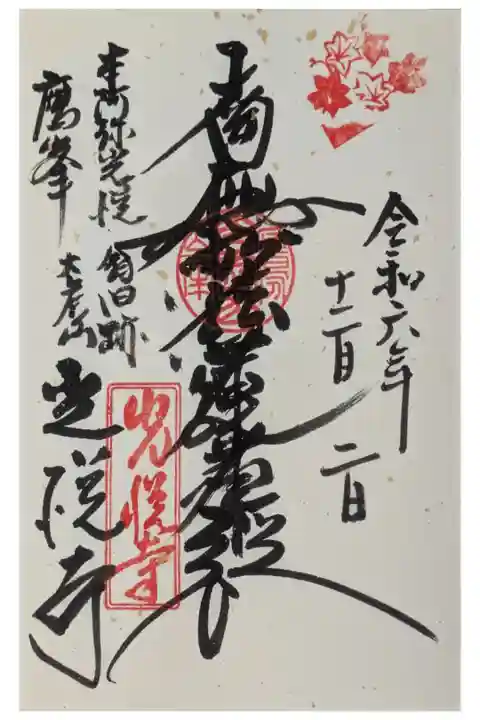 令和六年
十二月
二日
南無妙法蓮華経
光悦寺
本阿弥光悦翁旧跡
鷹峯
大虚山
光悦寺